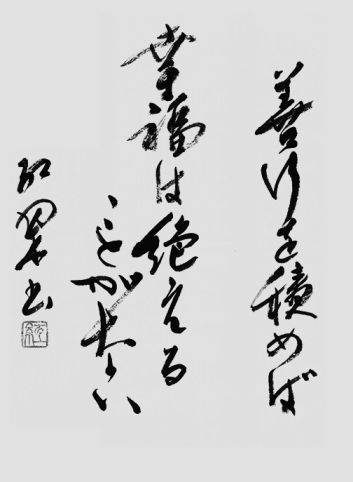 善行を積めば
幸福は絶える
ことがない
紅翠書